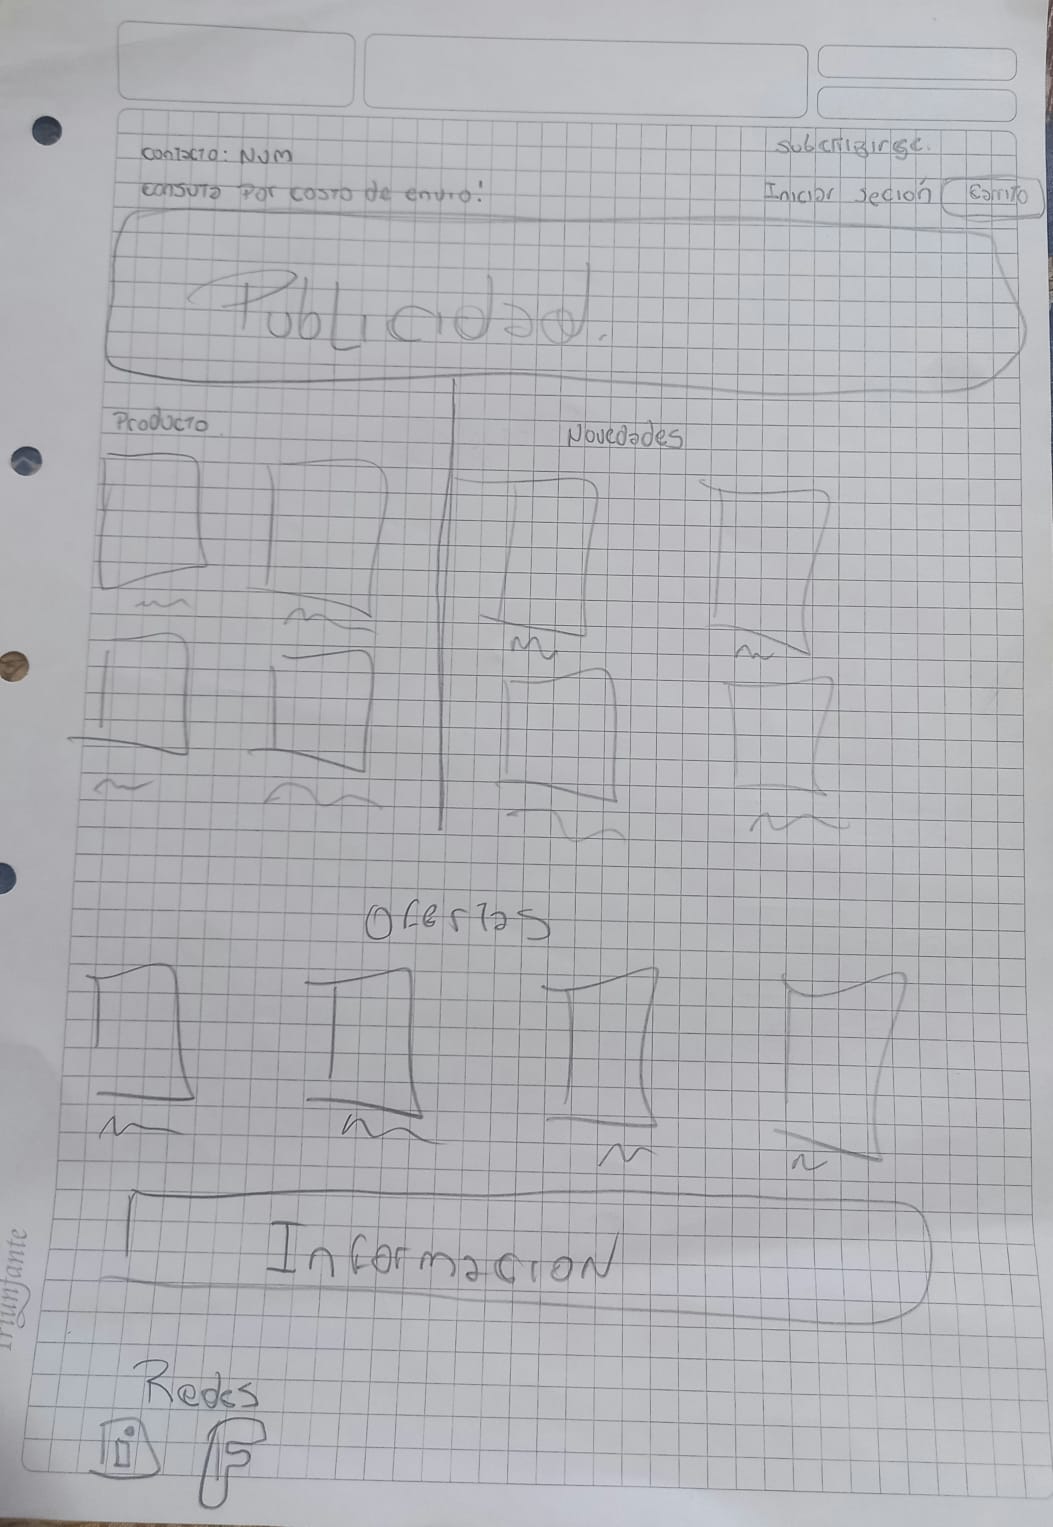 contacto: NUM
subcribirse.
consulta por costo de envio!
Iniciar seción
Carrito
Publicidad.
Producto
Novedades
Ofertas
Informacion
Redes
i F
Triunfante